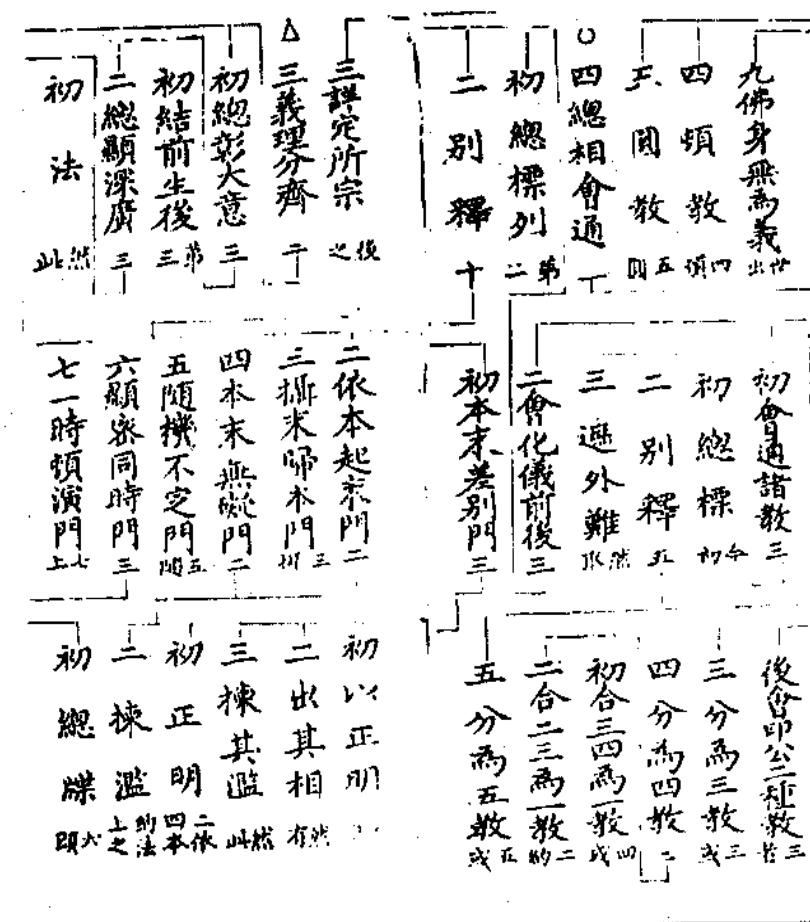 九佛身無為義 世出
四頓教 四頓
五圓教 五圓
四總相會通
初總標列 第二
二別釋 十
三詳定所宗 後之
三義理分齊 二
初總彰大意 三
初結前生後 第三
二總顯深廣 三
初法 然此
初會通諸教 三
初總標 今初
二別釋 五
三遮外難 然
二會化儀前後 三
初本末差別門 三
二依本起末門 二
三攝末歸本門 三
四本末無礙門 二
五隨機不定門 五隨
六顯密同時門 三
七一時頓演門 七上
後會印公二種教 三若
三分為三教 三或
四分為四教 二
初合三四為一教 四或
二合二三為一教 二約
五分為五教 五或
初以正明
二出其相 然有
三揀其濫 然此
初正明 二依四本
二揀濫 約法上之
初總牒 大